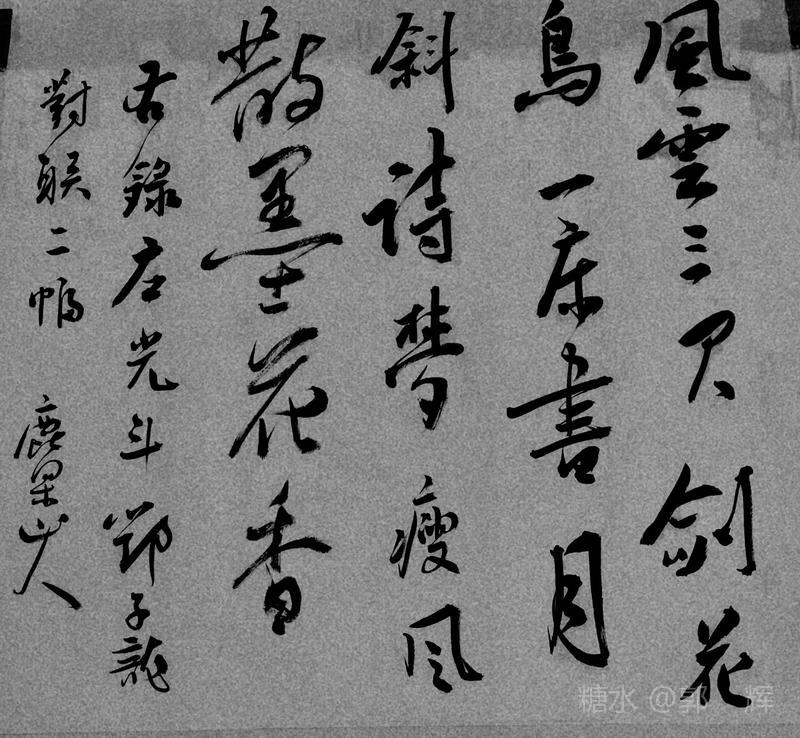 風雲三尺劍花
鳥一床書月
斜詩夢瘦風
散墨花香
右錄左光斗鄧子龍
對联二幅 鹿果山人
糖水 @郭 辉